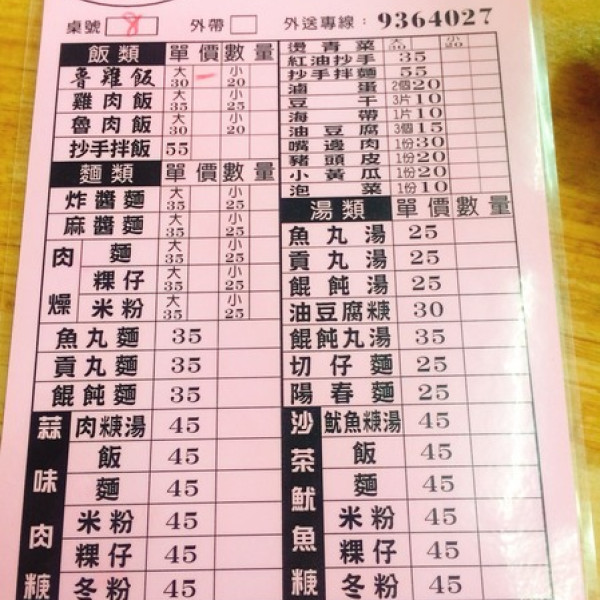 桌號 8 外帶 外送專線：9364027
飯類 單價 數量
魯雞飯 大30 小20
雞肉飯 大35 小25
魯肉飯 大30 小20
抄手拌飯 55
麵類 單價 數量
炸醬麵 大35 小25
麻醬麵 大35 小25
肉燥
麵 大35 小25
粿仔 大35 小25
米粉 大35 小25
魚丸麵 35
貢丸麵 35
餛飩麵 35
蒜味肉焿
肉焿湯 45
飯 45
麵 45
米粉 45
粿仔 45
冬粉 45
燙青菜 大30 小20
紅油抄手 35
抄手拌麵 55
滷蛋 2個20
豆干 3片10
海帶 1片10
油豆腐 3個15
嘴邊肉 1份30
豬頭皮 1份20
小黃瓜 1份20
泡菜 1份10
湯類 單價 數量
魚丸湯 25
貢丸湯 25
餛飩湯 25
油豆腐焿 30
餛飩丸湯 35
切仔麵 25
陽春麵 25
沙茶魷魚焿
魷魚焿湯 45
飯 45
麵 45
米粉 45
粿仔 45
冬粉 45